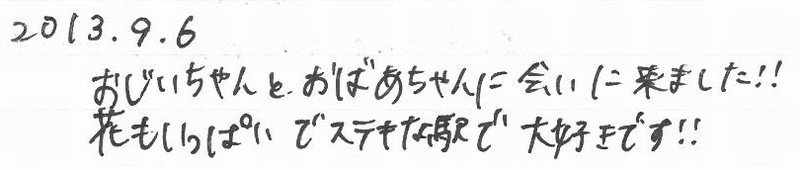 2013.9.6
おじいちゃんと、おばあちゃんに会いに来ました!!
花もいっぱいでステキな駅で大好きです!!